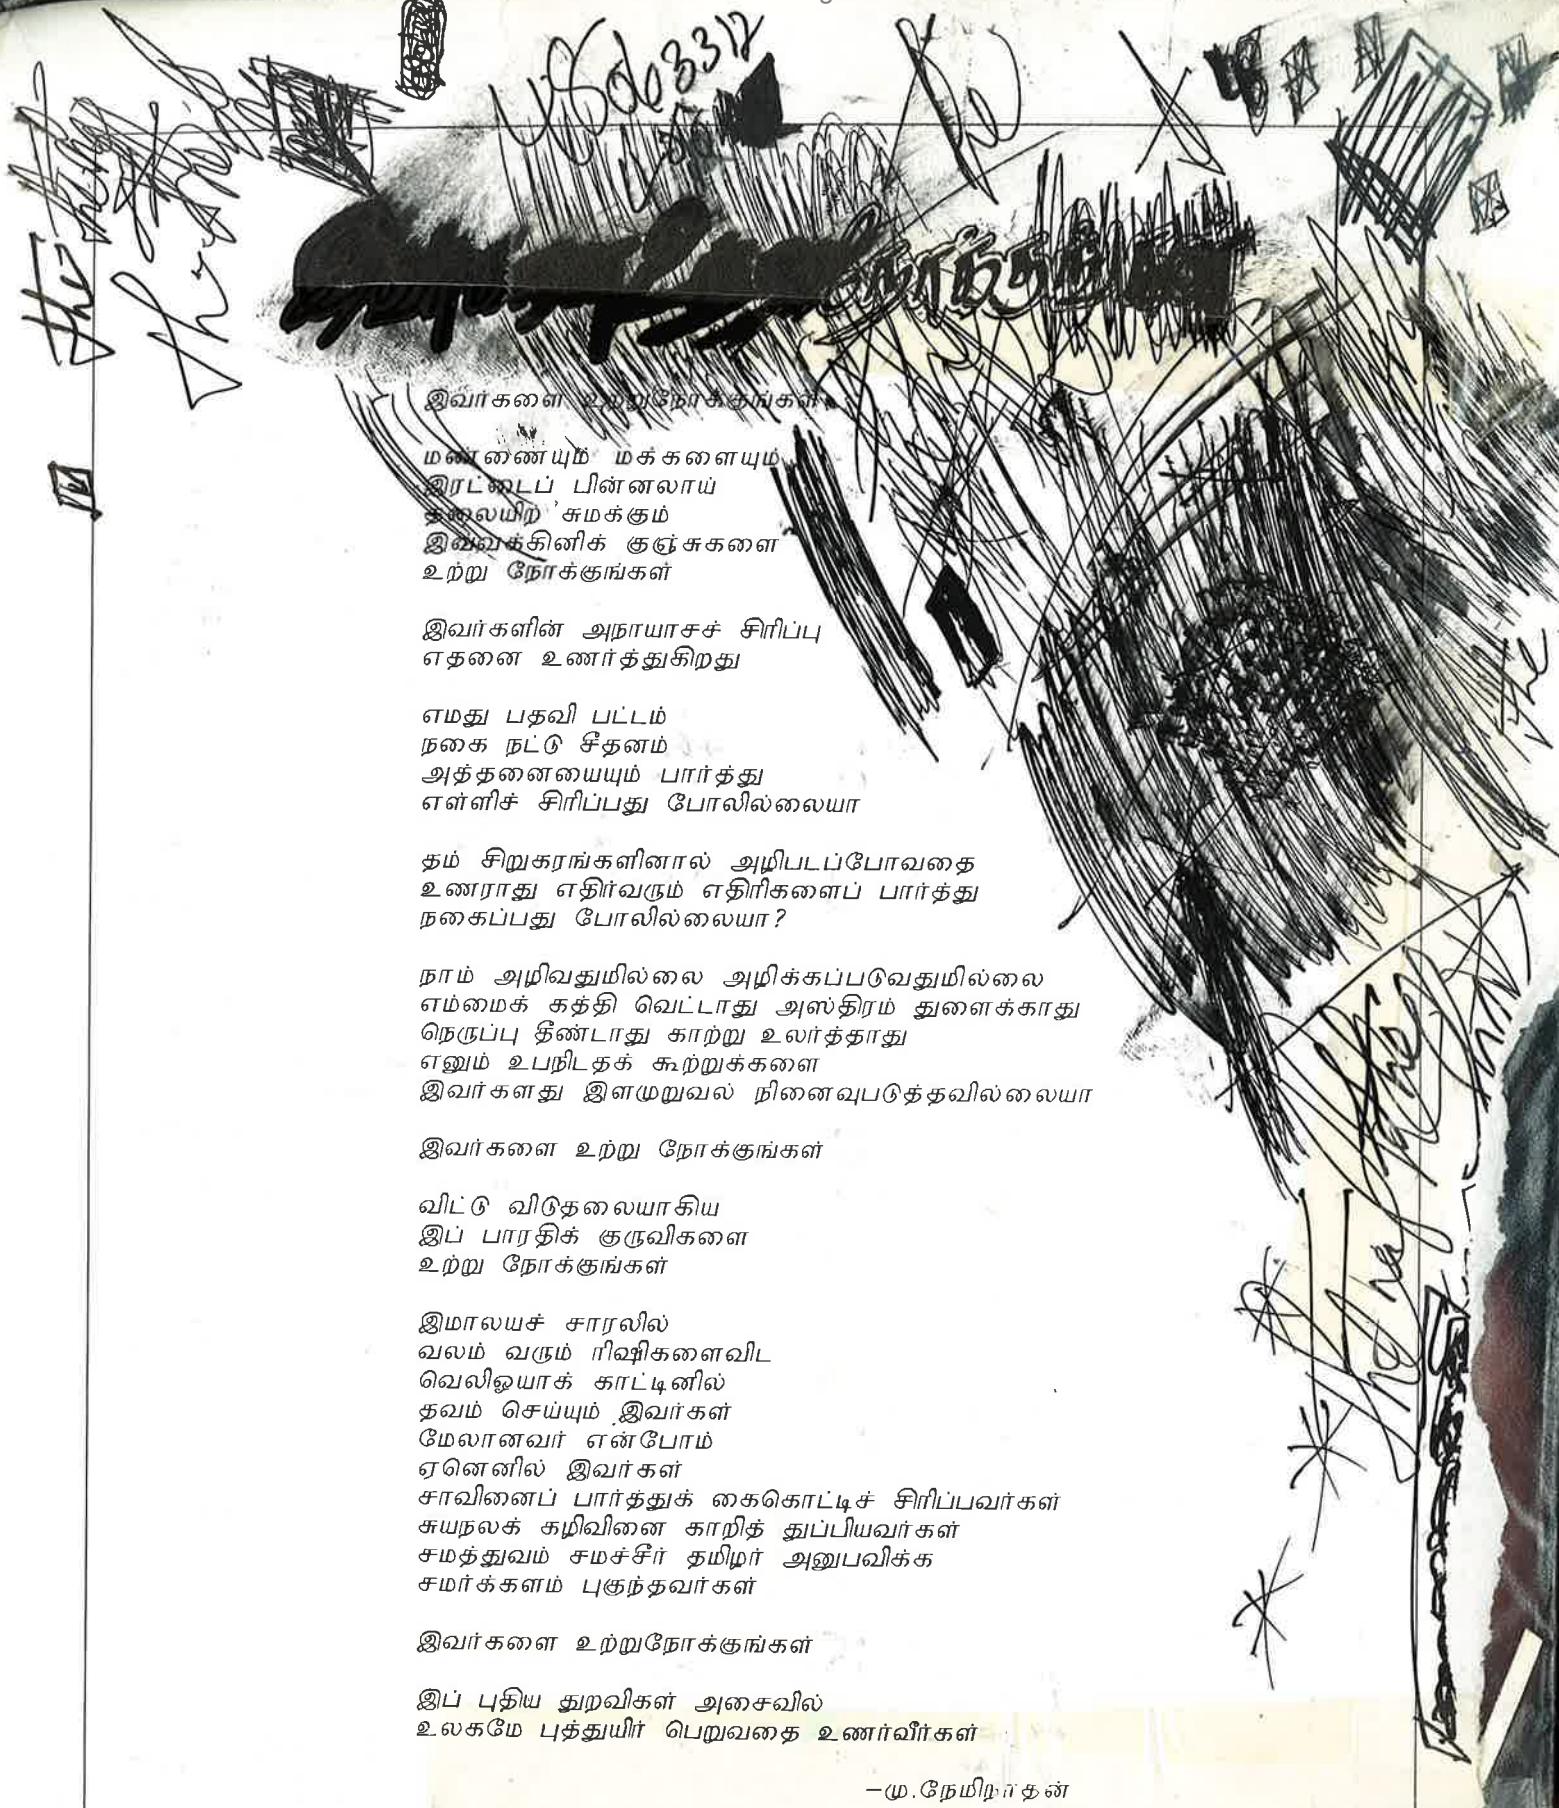 இவர்களை உற்றுநோக்குங்கள்
மண்ணையும் மக்களையும்
இரட்டைப் பின்னலாய்
தலையிற் சுமக்கும்
இவ்வக்கினிக் குஞ்சுகளை
உற்று நோக்குங்கள்
இவர்களின் அநாயாசச் சிரிப்பு
எதனை உணர்த்துகிறது
எமது பதவி பட்டம்
நகை நட்டு சீதனம்
அத்தனையையும் பார்த்து
எள்ளிச் சிரிப்பது போலில்லையா
தம் சிறுகரங்களினால் அழிபடப்போவதை
உணராது எதிர்வரும் எதிரிகளைப் பார்த்து
நகைப்பது போலில்லையா?
நாம் அழிவதுமில்லை அழிக்கப்படுவதுமில்லை
எம்மைக் கத்தி வெட்டாது அஸ்திரம் துளைக்காது
நெருப்பு தீண்டாது காற்று உலர்த்தாது
எனும் உபநிடதக் கூற்றுக்களை
இவர்களது இளமுறுவல் நினைவுபடுத்தவில்லையா
இவர்களை உற்று நோக்குங்கள்
விட்டு விடுதலையாகிய
இப் பாரதிக் குருவிகளை
உற்று நோக்குங்கள்
இமாலயச் சாரலில்
வலம் வரும் ரிஷிகளைவிட
வெலிஓயாக் காட்டினில்
தவம் செய்யும் இவர்கள்
மேலானவர் என்போம்
ஏனெனில் இவர்கள்
சாவினைப் பார்த்துக் கைகொட்டிச் சிரிப்பவர்கள்
சுயநலக் கழிவினை காறித் துப்பியவர்கள்
சமத்துவம் சமச்சீர் தமிழர் அனுபவிக்க
சமர்க்களம் புகுந்தவர்கள்
இவர்களை உற்றுநோக்குங்கள்
இப் புதிய துறவிகள் அசைவில்
உலகமே புத்துயிர் பெறுவதை உணர்வீர்கள்
–மு.நேமிநாதன்
the
the